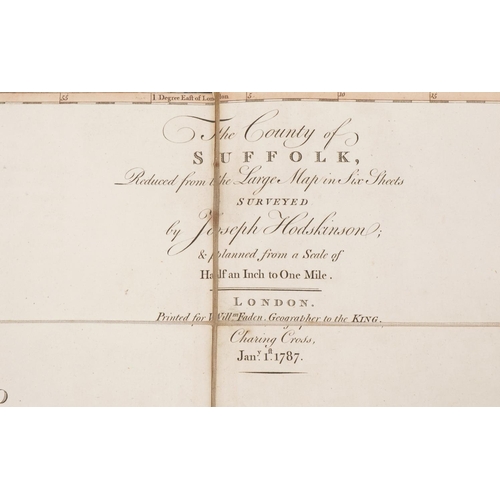 55 1 Degree East of London 5 10 15
The County of
SUFFOLK,
Reduced from the Large Map in Six Sheets
SURVEYED
by Joseph Hodskinson;
& planned from a Scale of
Half an Inch to One Mile.
LONDON.
Printed for Willm. Faden, Geographer to the KING.
Charing Cross,
Jany. 1st. 1787.